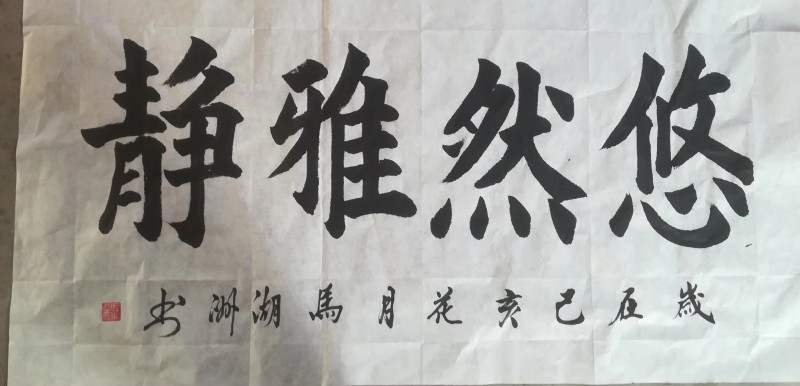 悠然雅静
歲在己亥花月馬湖洲书